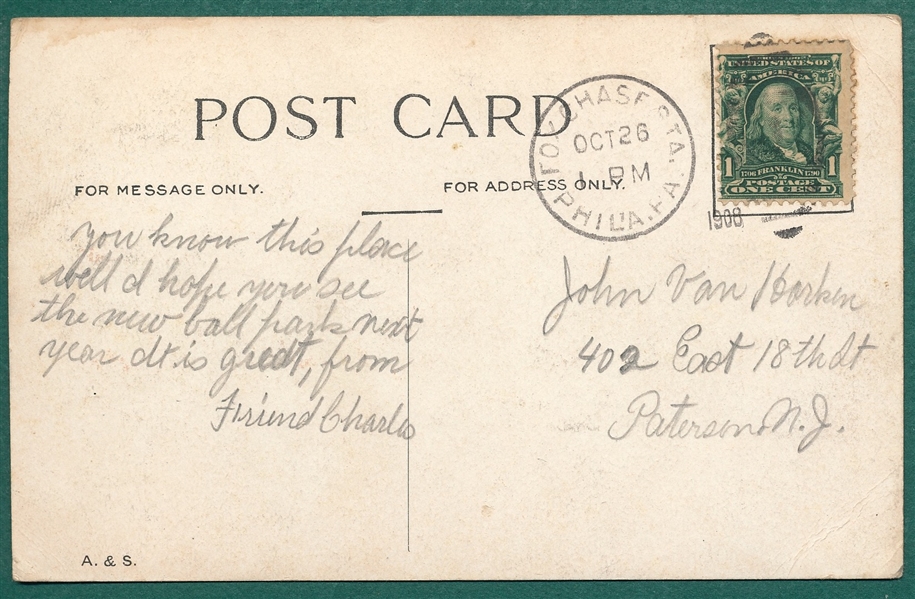 POST CARD
FOR MESSAGE ONLY.
FOR ADDRESS ONLY.
FOX CHASE STA.
OCT 26
1 PM
PHILA. PA.
1908
UNITED STATES OF
AMERICA
1 1
1706 FRANKLIN 1790
POSTAGE
ONE CENT
you know this place
well I hope you see
the new ball park next
year It is great, from
Friend Charles
John Van Horken
402 East 18th St
Paterson N.J.
A. & S.